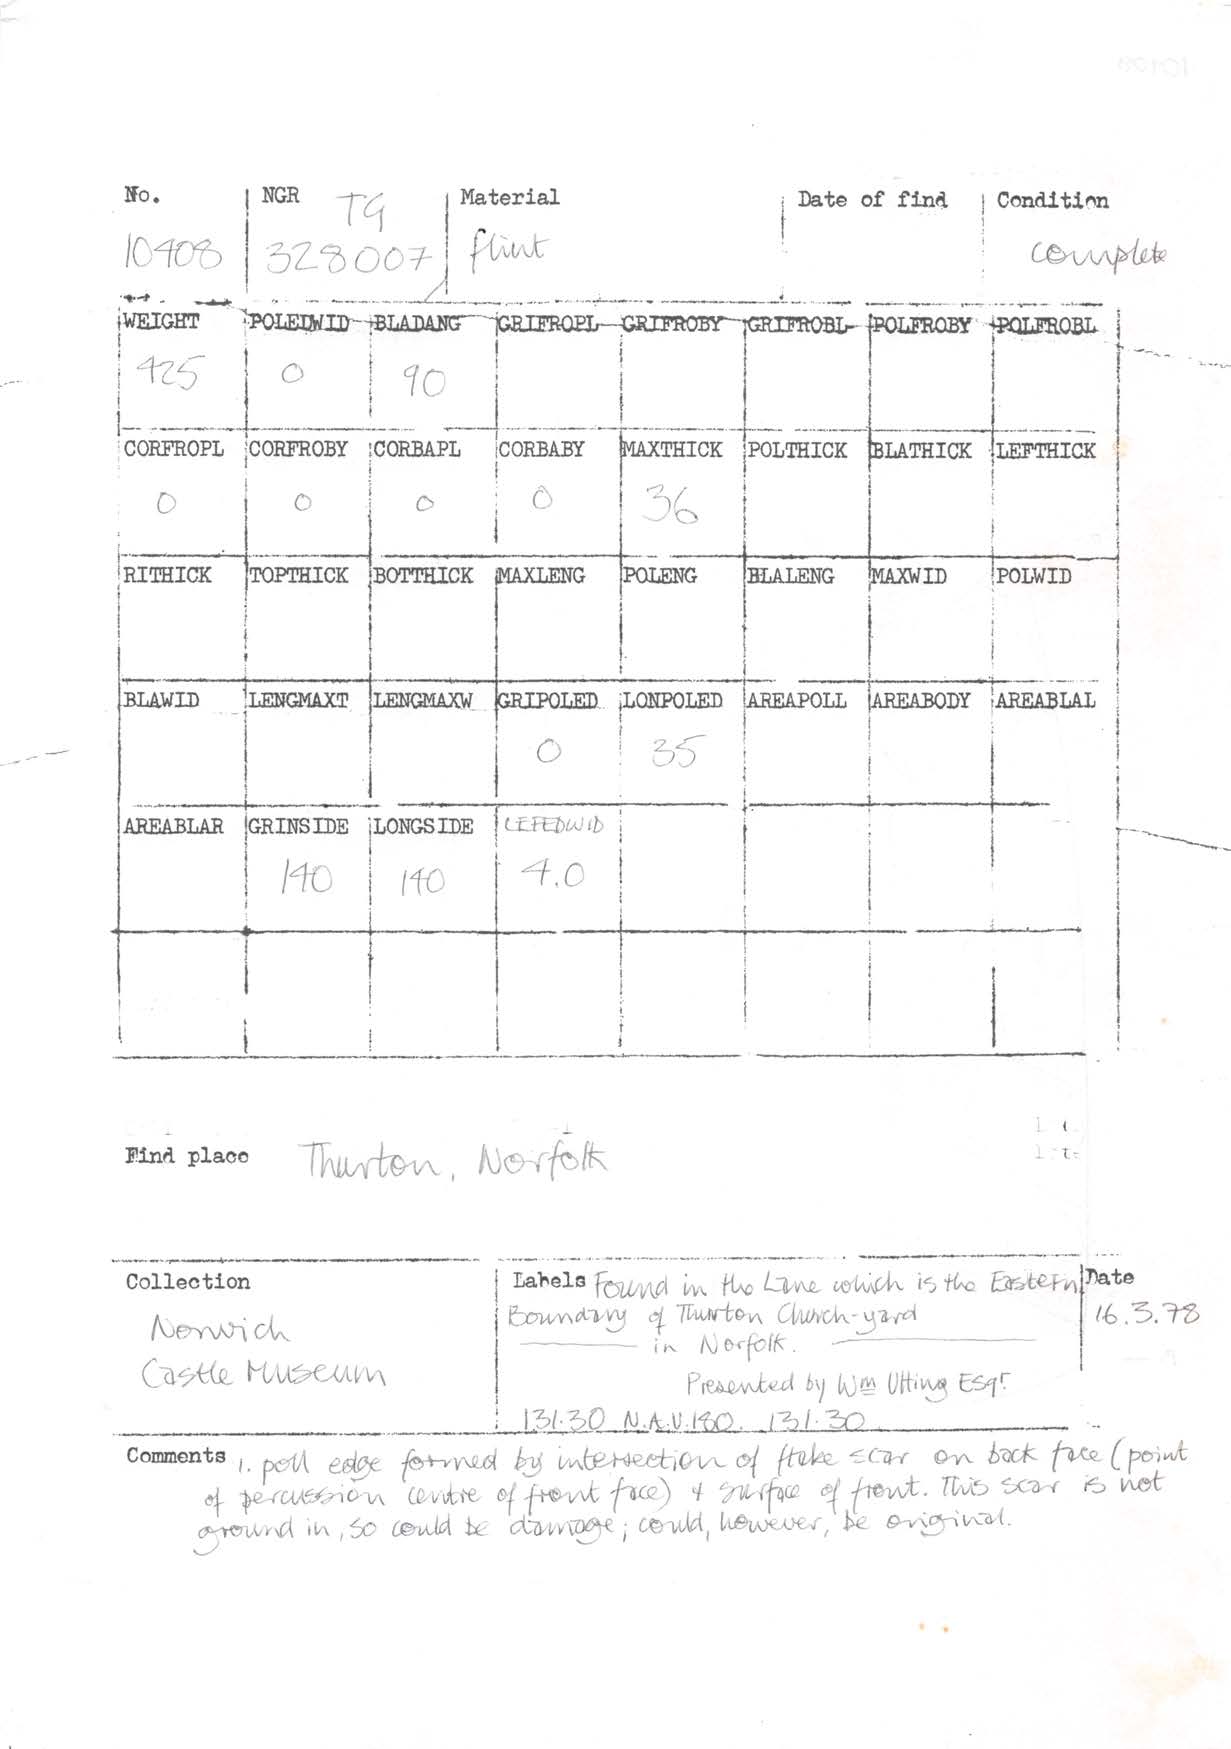 No. NGR TG Material Date of find Condition
10408 328007 flint complete
WEIGHT POLEDWID BLADANG GRIFROPL GRIFROBY GRIFROBL POLFROBY POLFROBL
425 0 90
CORFROPL CORFROBY CORBAPL CORBABY MAXTHICK POLTHICK BLATHICK LEFTHICK
0 0 0 0 36
RITHICK TOPTHICK BOTTHICK MAXLENG POLENG BLALENG MAXWID POLWID
BLAWID LENGMAXT LENGMAXW GRIPOLED LONPOLED AREAPOLL AREABODY AREABLAL
0 35
AREABLAR GRINSIDE LONGSIDE LEFEDWID
140 140 4.0
Find place Thurton, Norfolk
Collection
Norwich
Castle Museum
Labels Found in the Lane which is the Eastern
Boundary of Thurton Church-yard
in Norfolk.
Presented by Wm Utting Esqr.
131.30 N.A.V.180. 131.30
Date
16.3.78
Comments 1. poll edge formed by intersection of flake scar on back face (point
of percussion centre of front face) + surface of front. This scar is not
ground in, so could be damage; could, however, be original.